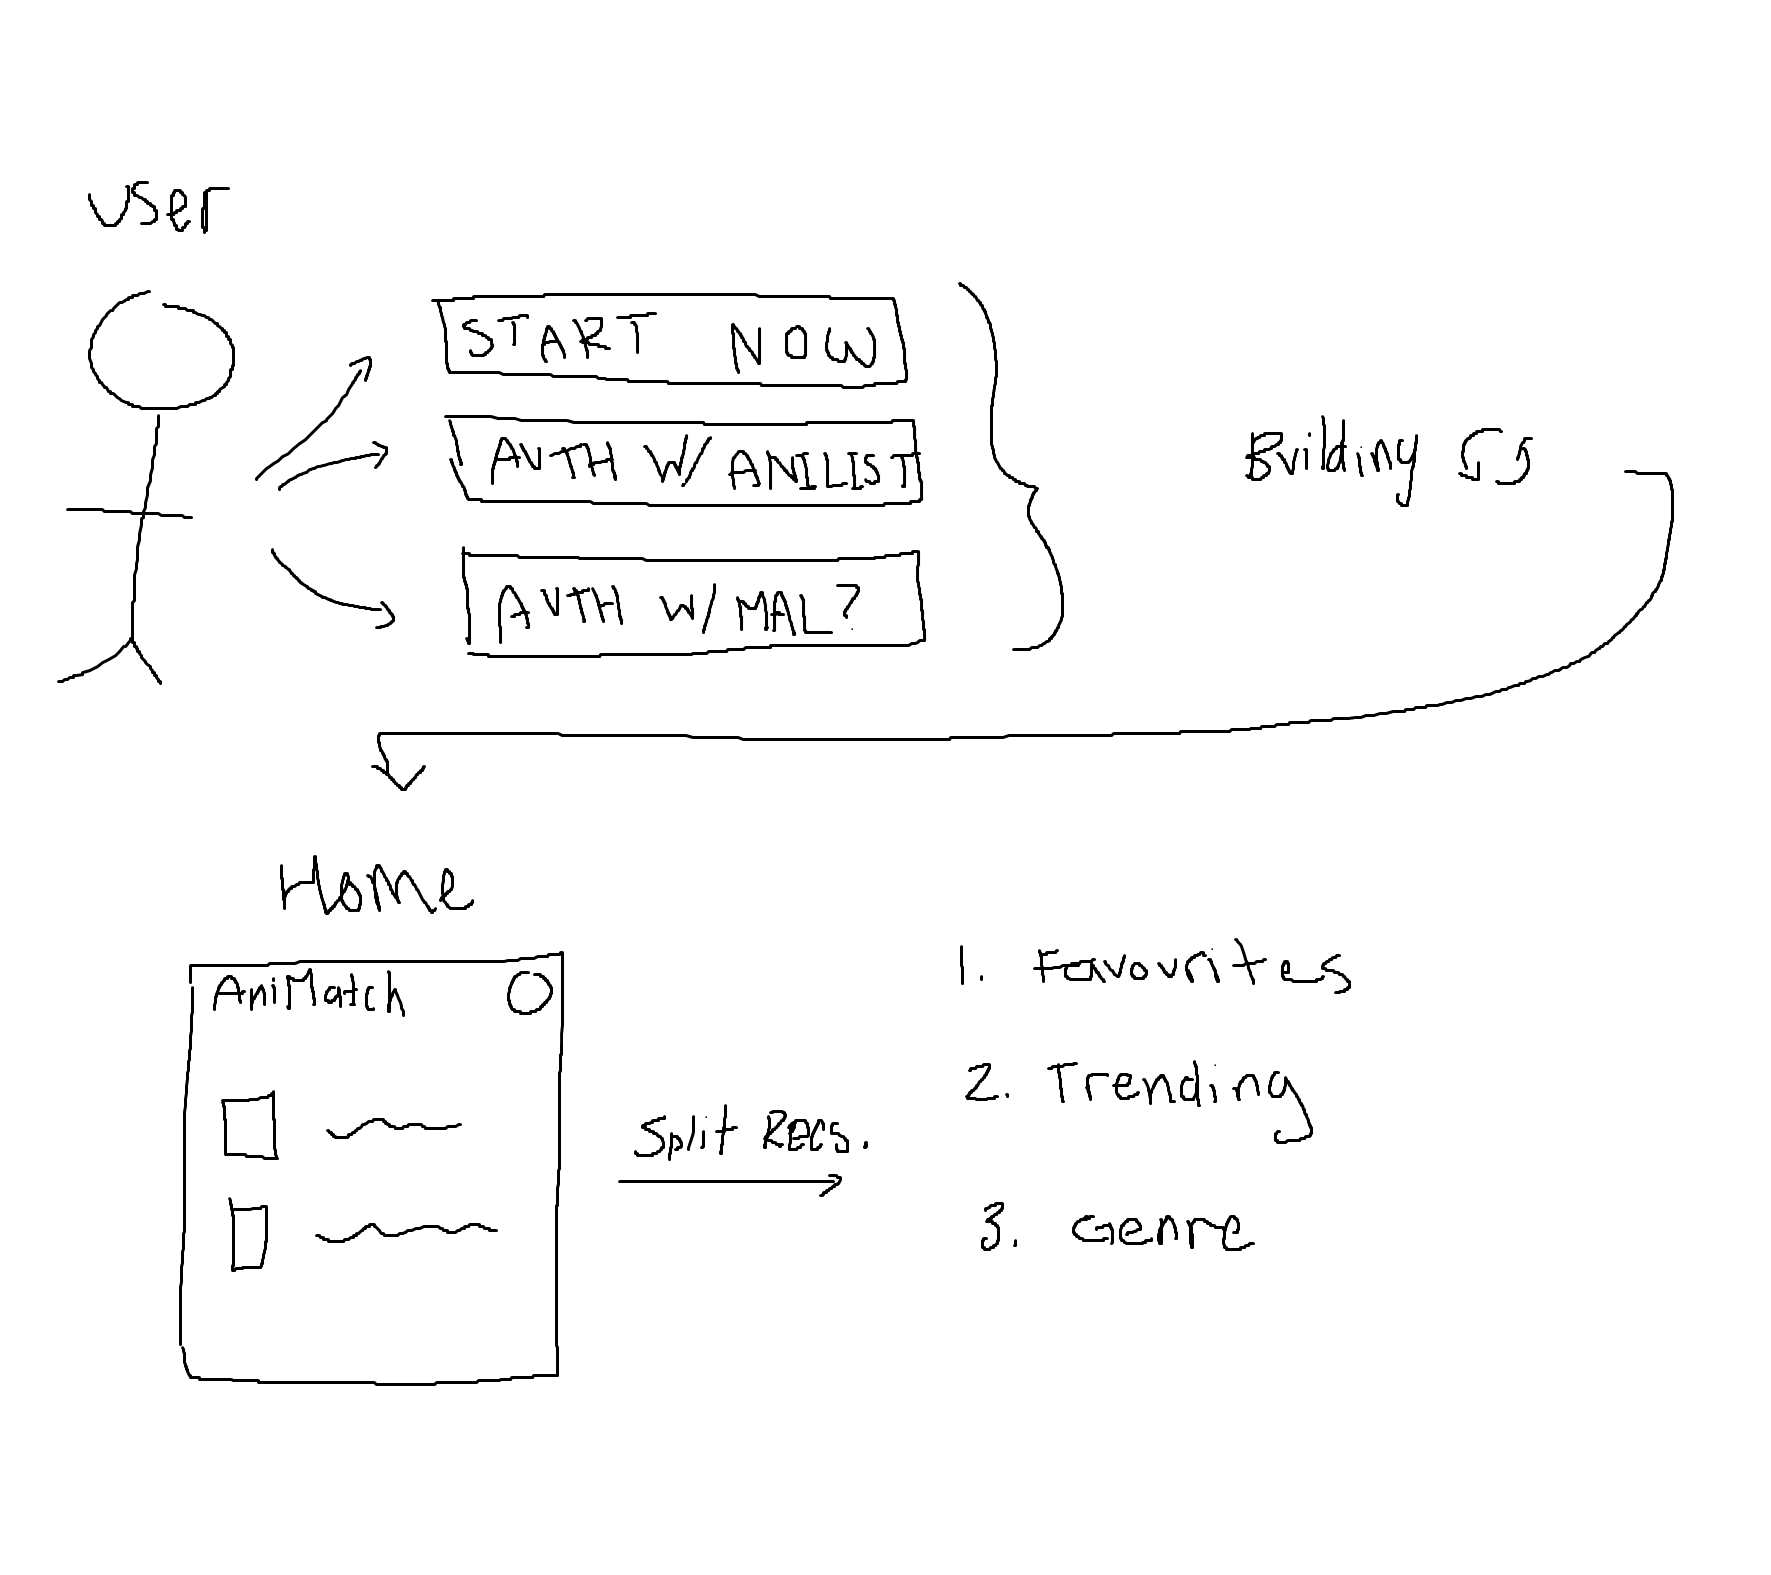 User
START NOW
AUTH W/ ANILIST
AUTH W/ MAL?
Building
Home
AniMatch
Split Recs.
1. Favourites
2. Trending
3. Genre